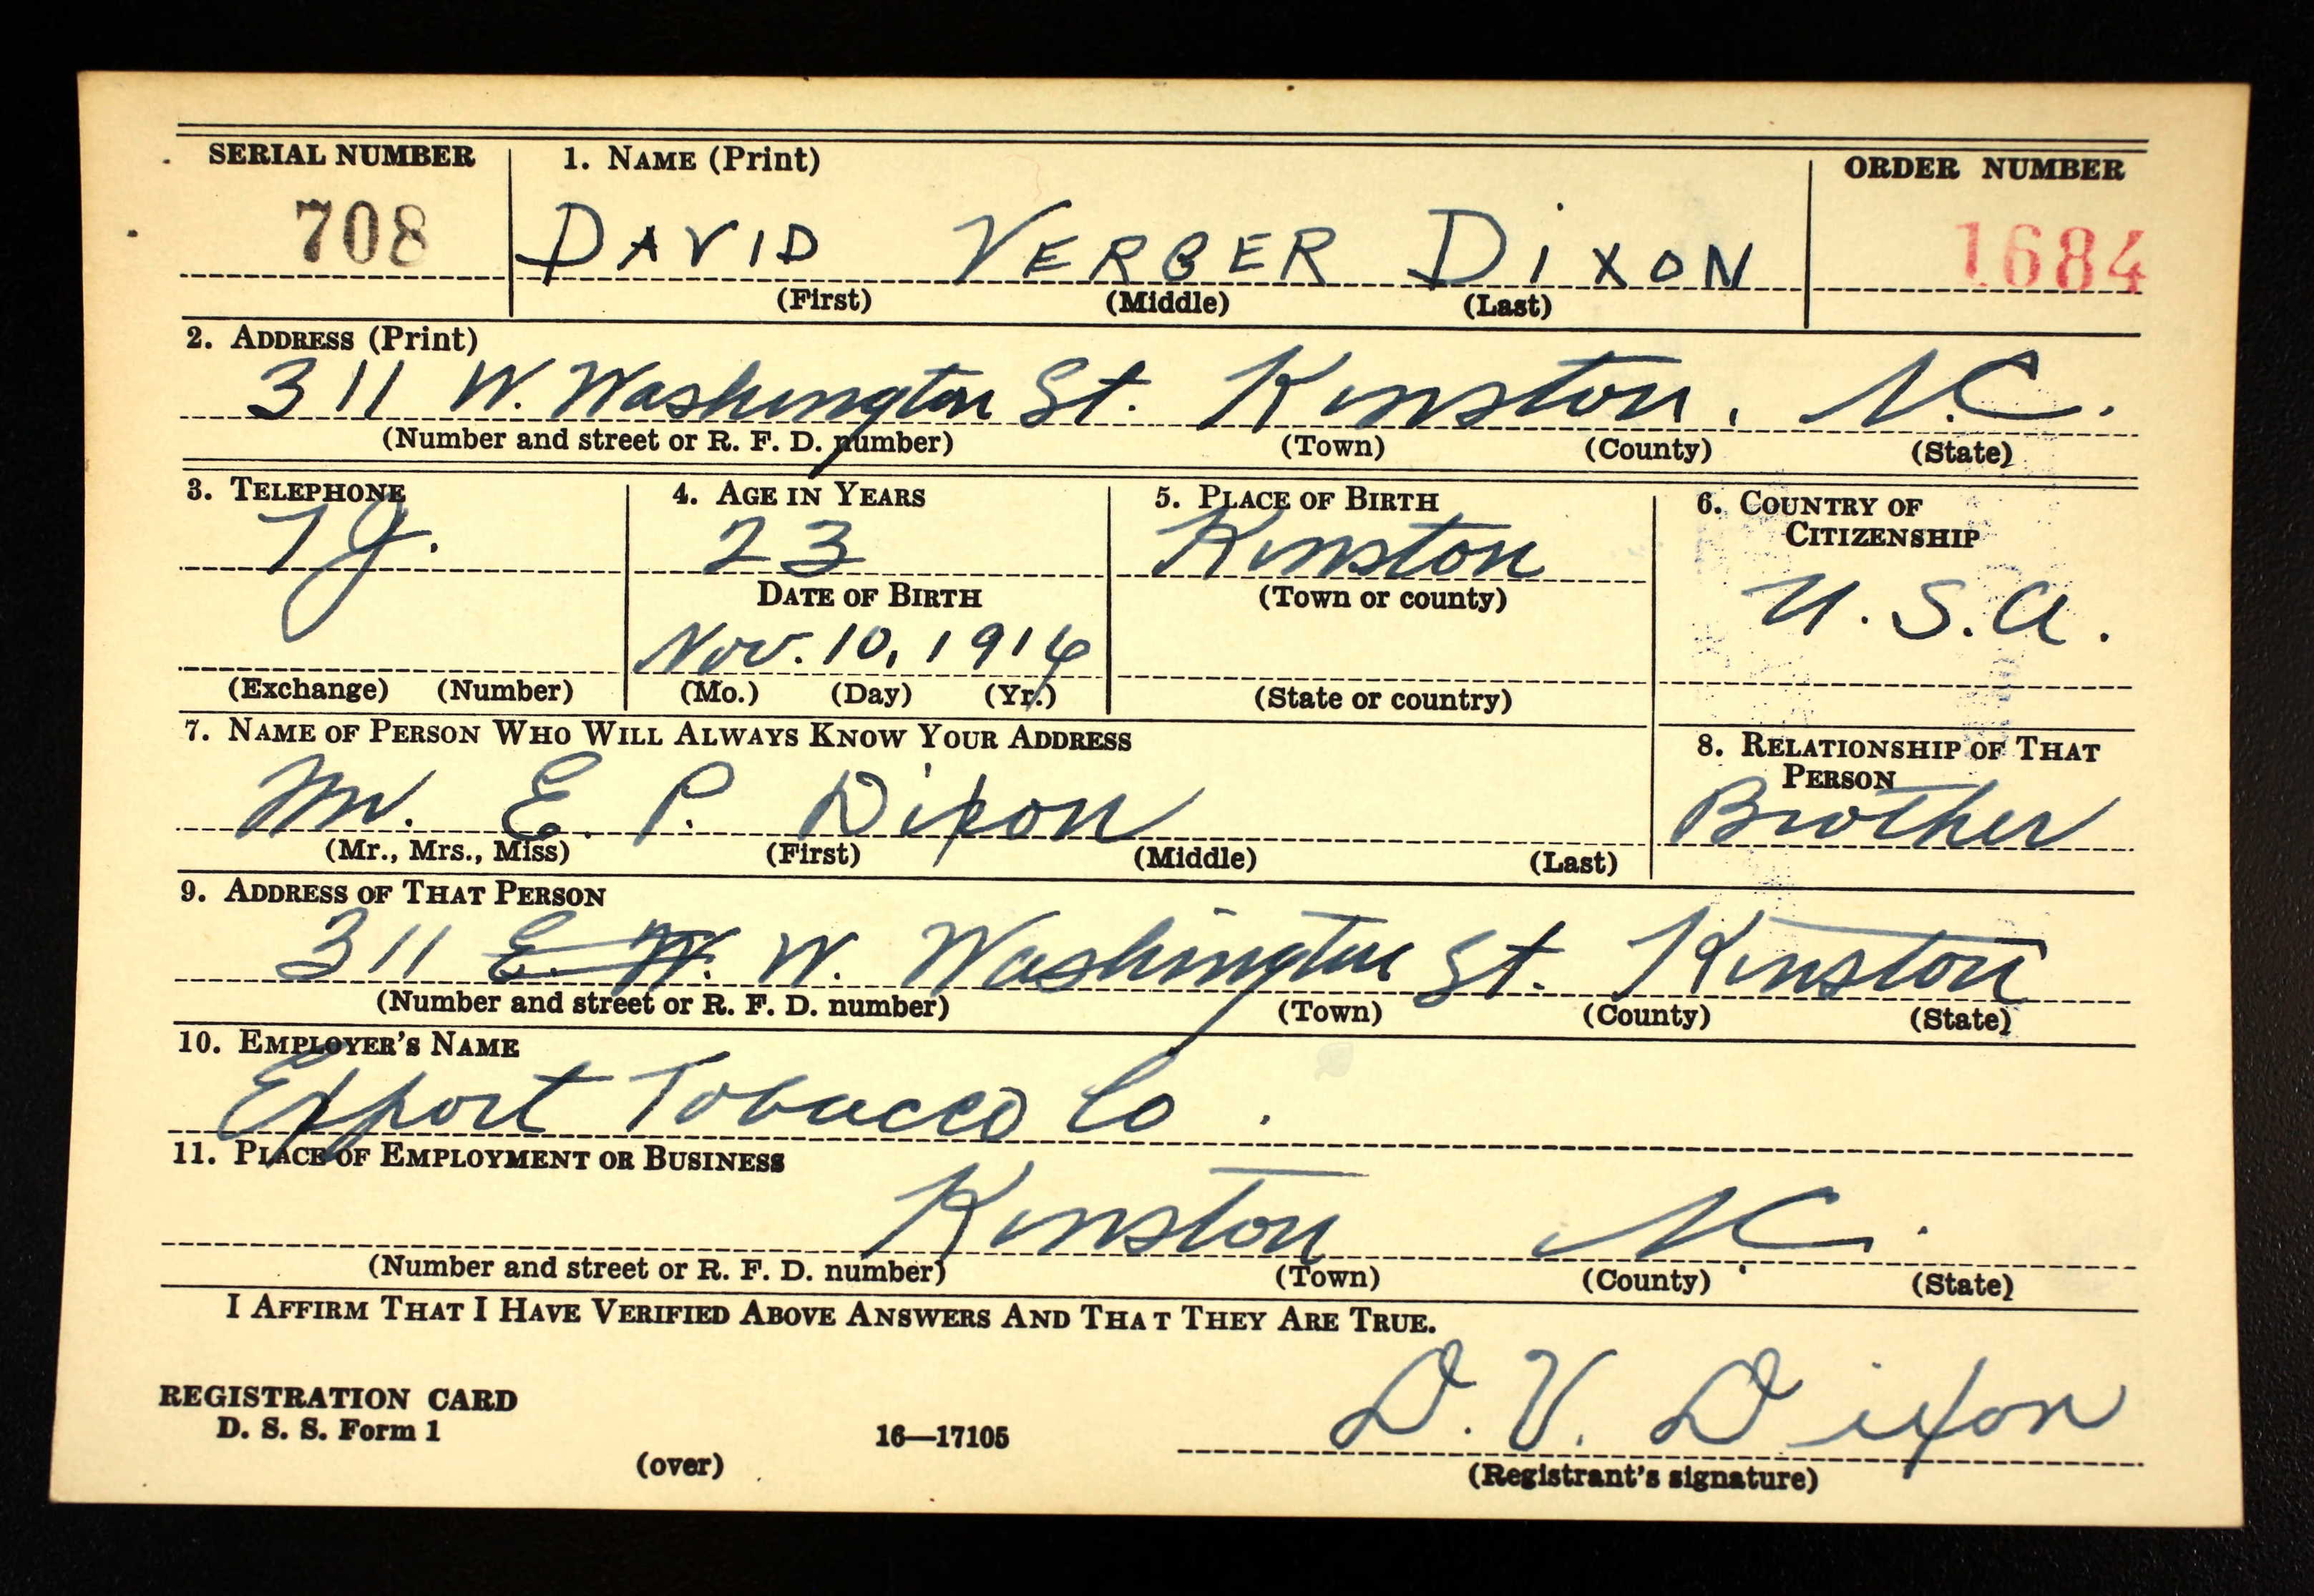 SERIAL NUMBER 1. NAME (Print) ORDER NUMBER
708 DAVID VERBER DIXON 1684
(First) (Middle) (Last)
2. ADDRESS (Print)
311 W. Washington St. Kinston, N.C.
(Number and street or R. F. D. number) (Town) (County) (State)
3. TELEPHONE 4. AGE IN YEARS 5. PLACE OF BIRTH 6. COUNTRY OF
CITIZENSHIP
7J. 23 Kinston
DATE OF BIRTH (Town or county)
U.S.A.
Nov. 10, 1916
(Exchange) (Number) (Mo.) (Day) (Yr.) (State or country)
7. NAME OF PERSON WHO WILL ALWAYS KNOW YOUR ADDRESS 8. RELATIONSHIP OF THAT
PERSON
Mr. E. P. Dixon Brother
(Mr., Mrs., Miss) (First) (Middle) (Last)
9. ADDRESS OF THAT PERSON
311 E. W. W. Washington St. Kinston
(Number and street or R. F. D. number) (Town) (County) (State)
10. EMPLOYER'S NAME
Export Tobacco Co.
11. PLACE OF EMPLOYMENT OR BUSINESS
Kinston N.C.
(Number and street or R. F. D. number) (Town) (County) (State)
I AFFIRM THAT I HAVE VERIFIED ABOVE ANSWERS AND THAT THEY ARE TRUE.
D. V. Dixon
REGISTRATION CARD
D. S. S. Form 1 16—17105
(over) (Registrant's signature)